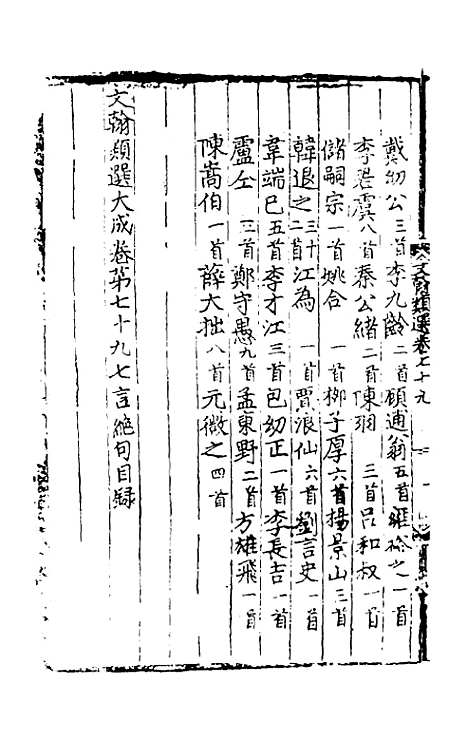 文翰類選卷七十九
戴幼公三首李九齡二首顧逋翁五首雍
之一首
李君虞八首秦公緒二首陳羽三首呂和叔一首
儲嗣宗一首姚合一首柳子厚六首楊景山三首
韓退之三十二首江為一首賈浪仙六首劉言史一首
韋端己五首李才江三首包幼正一首李長吉一首
盧仝三首鄭守愚九首孟東野二首方雄飛一首
陳嵩伯一首薛大拙八首元微之四首
文翰類選大成卷第七十九七言絕句目錄